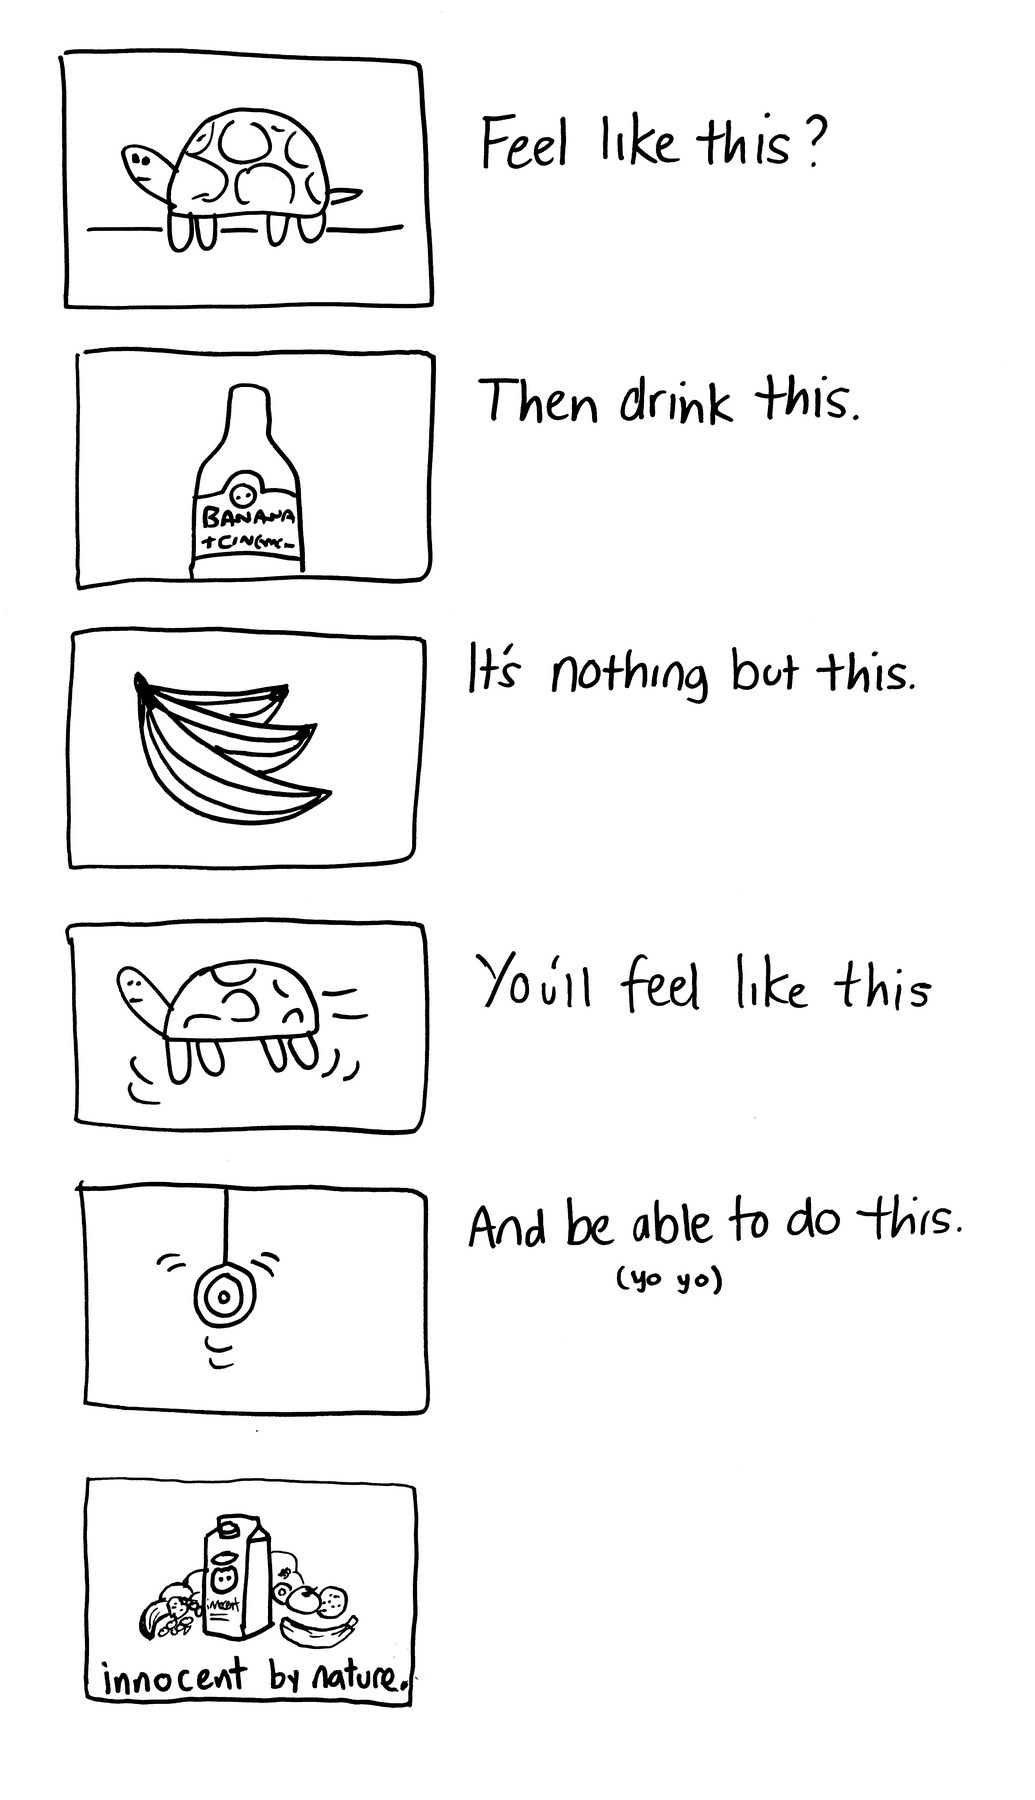 Feel like this?
Then drink this.
BANANA
It's nothing but this.
You'll feel like this
And be able to do this.
(yo yo)
innocent
innocent by nature.